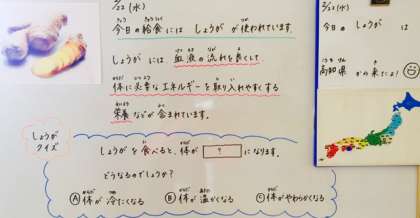 2/22(水)
今日の給食には しょうが が使われています。
しょうが には 血液の 流れを良くして
体に必要な エネルギーを取り入れやすくする
栄養 などが 含まれています。
しょうが
クイズ
しょうが を 食べると、体が ? になります。
どうなるのでしょうか?
Ⓐ体が 冷たくなる Ⓑ体が 温かくなる Ⓒ体がやわらかくなる
2/22(水)
今日の しょうが は
高知県 から来たよ!